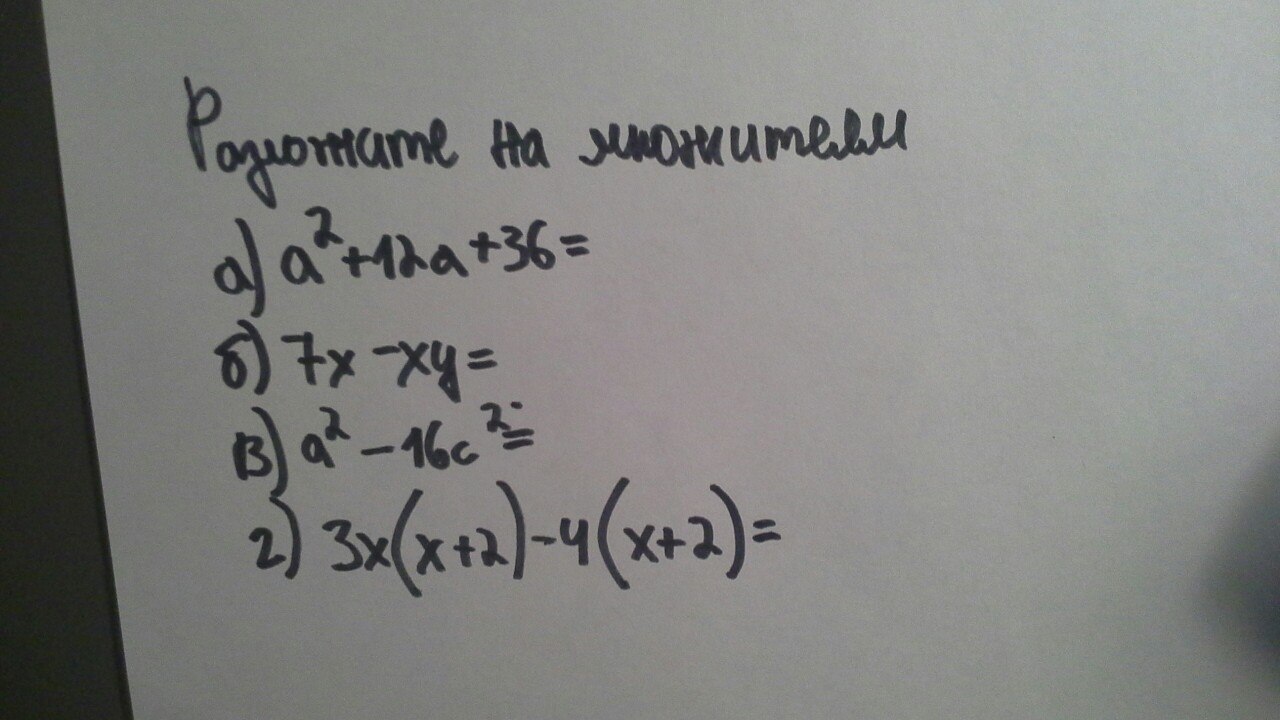 Разложите на множители
а) a²+12a+36=
б) 7x-xy=
в) a²-16c²=
г) 3x(x+2)-4(x+2)=